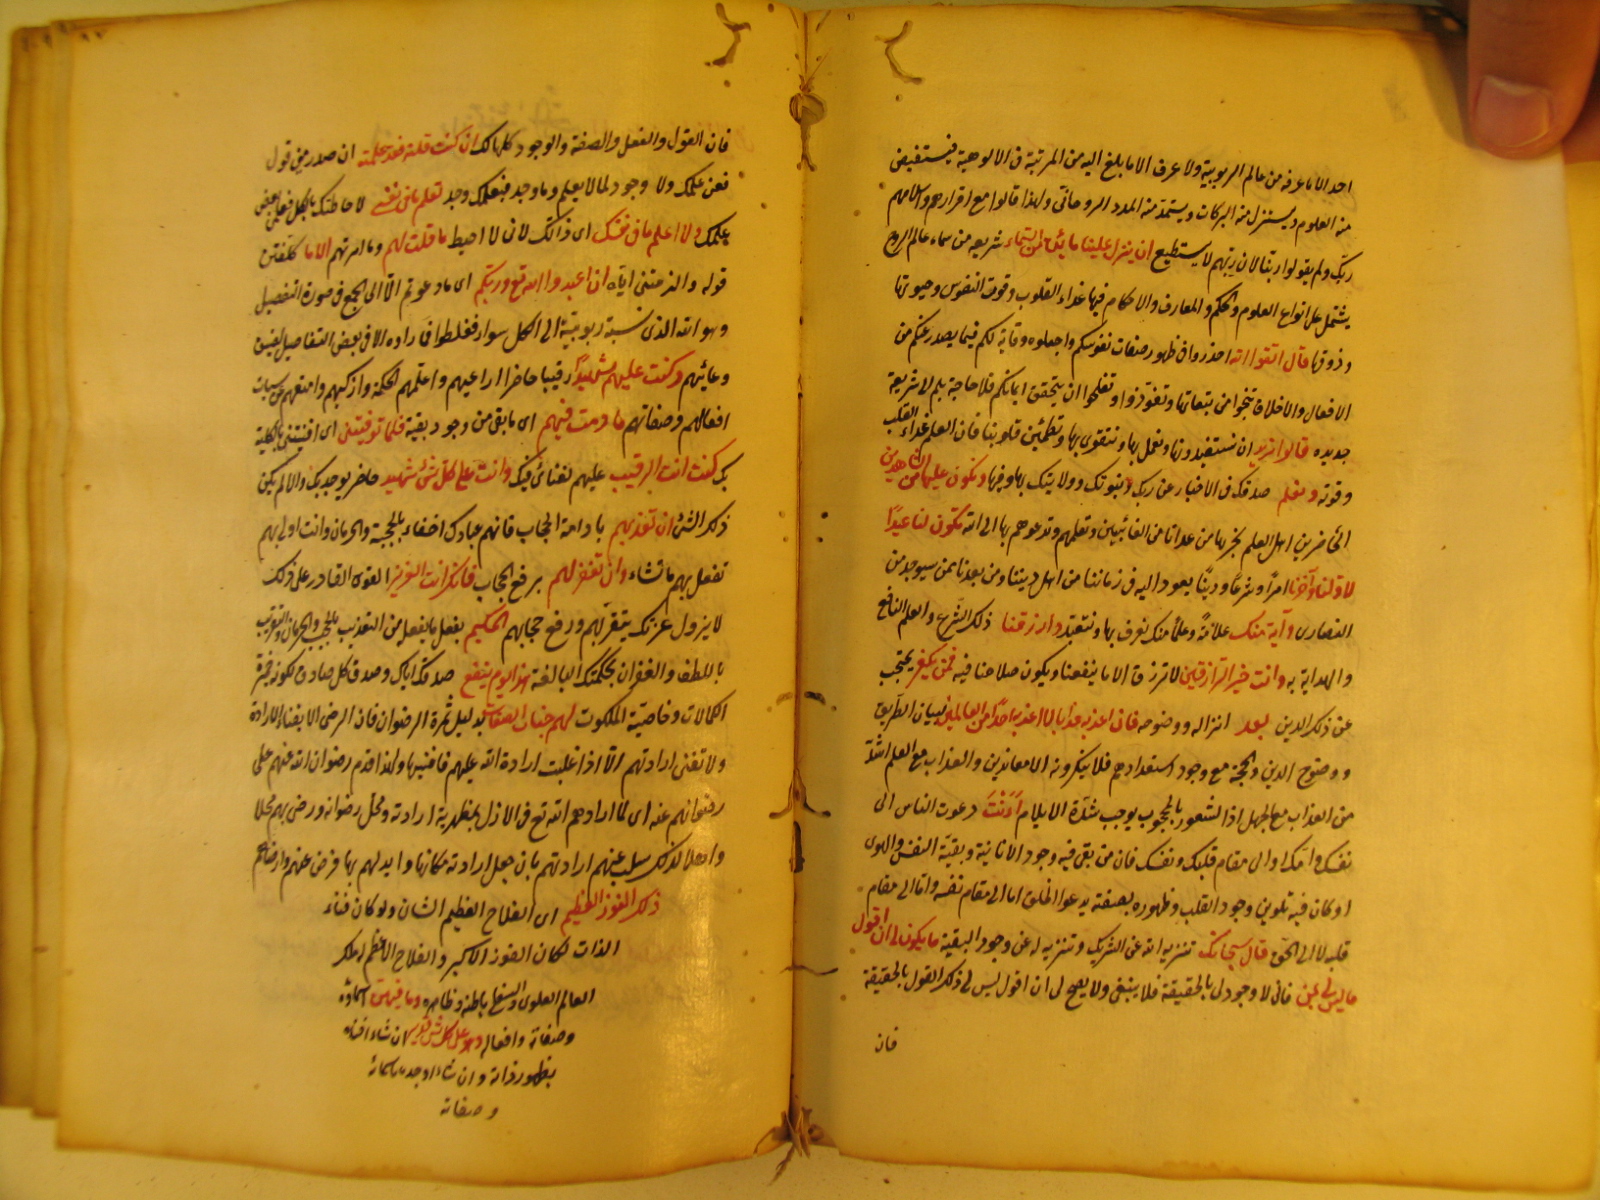 احد الا ما عرفه من عالم الربوبية ولا عرف الا ما بلغ اليه من المرتبة فى الالوهية فيستفيض
منه العلوم ويستنزل منه البركات ويستمد منه المدد الروحانى ولهذا قالوا مع اقرارهم واسلامهم
ربك ولم يقولوا ربنا لان ربهم لا يستطيع ان ينزل علينا مائدة من السماء شريعة من سماء عالم الروح
يشتمل على انواع العلوم والحكم والمعارف والاحكام فيها غذاء القلوب وقوت النفوس وحيوتها
وذوقها قال اتقوا الله احذروا فى ظهور صفات نفوسكم واجعلوه وقاية لكم فيما يصدر عنكم من
الافعال والاخلاق تنجوا من تبعاتها وتفوزوا وتفلحوا ان يتحقق ايمانكم فلا حاجة بكم لا شريعة
جديدة قالوا نريد ان نستفيد منها ونعمل بها ونتقوى بها وتطمئن قلوبنا فان العلم غذاء القلب
وقوته ونعلم صدقك فى الاخبار عن ربك ونبوتك وولايتك بها وفيها ونكون عليها من الشاهدين
الحاضرين اهل العلم نخبر بها من عدانا من الغائبين ونعلمهم وندعوهم بها الى الله تكون لنا عيدًا
لاولنا وآخرنا امرًا وشرعًا ودينًا يعود اليه فى زماننا من اهل ديننا ومن بعدنا ممن سيوجد من
النصارى وآية منك علامة وعلمًا منك نعرف بها ونتعبد وارزقنا ذلك الشرع والعلم النافع
والهداية به وانت خير الرازقين لا ترزق الا ما ينفعنا ويكون صلاحنا فيه فمن يكفر يحتجب
عن ذلك الدين بعد انزاله ووضوحه فانى اعذبه عذابا لا اعذبه احدًا من العالمين لبيان الطريق
ووضوح الدين والحجة مع وجود استعدادهم فلا ينكرونه الا معاندين والعذاب مع العلم اشد
من العذاب مع الجهل اذ الشعور بالمحجوب يوجب شدة الايلام أأنت دعوت الناس الى
نفسك وامك او الى مقام قلبك ونفسك فان من بقى فيه وجود الانانية وبقية النفس والهوى
او كان فيه تلوين وجود القلب وظهوره بصفته يدعو الخلق اما الى مقام نفسه واما الى مقام
قلبه لا الى الحق قال سبحانك تنزيه الله عن الشريك وتنزيه له عن وجود البقية ما يكون لى ان اقول
ما ليس لى بحق فانى لا وجود لى بالحقيقة فلا ينبغى ولا يصح لى ان اقول ليس لى ذلك القول بالحقيقة
فان
فان القول والفعل والصفة والوجود كلها لك ان كنت قلته فقد علمته ان صدر منى قول
فعن علمك ولا وجود لما لا يعلم وما وجد فبعلمك وجد تعلم ما فى نفسى لاحاطتك بالكل فعلمى بعض
علمك ولا اعلم ما فى نفسك اى ذاتك لانى لا احيط ما قلت لهم وما امرتهم الا ما كلفتنى
قوله والزمتنى اياه ان اعبدوا الله ربى وربكم اى ما دعوتهم الا الى الجمع فى صورة التفصيل
وهو الله الذى نسبة ربوبيته الى الكل سواء فغلطوا فما رأوه الا فى بعض التفاصيل لضيق
وعائهم وكنت عليهم شهيدًا رقيبا حاضرا اراعيهم واعلمهم الحكمة وازكيهم وامنعهم من سيئات
افعالهم وصفاتهم ما دمت فيهم اى ما بقى من وجود بقية فلما توفيتنى اى افنيتنى بالكلية
بك كنت انت الرقيب عليهم لفنائى فيك وانت على كل شئ شهيد حاضر يوجد بك والا لم يكن
ذلك الشئ ان تعذبهم بادامة الحجاب فانهم عبادك احقاء بالحجبة والحرمان وانت اولى بهم
تفعل بهم ما تشاء وان تغفر لهم برفع الحجاب فانك انت العزيز القوى القادر على ذلك
لا يزول عزتك بتقربهم ورفع حجابهم الحكيم يفعل ما يفعل من التعذيب بالحجب والحرمان والتقريب
باللطف والغفران بحكمتك البالغة هذا يوم ينفع صدقك اياك وصدق كل صادق لكونه خيرة
الكمالات وخاصية الملكوت لهم جنات الصفات بدليل ثمرة الرضوان فان الرضى لا بفناء الارادة
ولا تفنى ارادتهم الا اذا غلبت ارادة الله عليهم فافنتها ولهذا قدم رضوان الله عنهم على
رضوانهم عنه اى لما ارادهم الله تع فى الازل بمظهرية ارادته ومحل رضوانه ورضى بهم محلا
واهلا لذلك سلب عنهم ارادتهم بان جعل ارادته مكانها وابدلهم بها فرضى عنهم وارضاهم
ذلك الفوز العظيم اى الفلاح العظيم الشان ولو كان فناء
الذات لكان الفوز الاكبر والفلاح الاعظم لله ملك
العالم العلوى والسفلى باطنه وظاهره وما فيهن اسمائه
وصفاته وافعاله وهو على كل شئ قدير ان شاء افناه
بظهور ذاته وان شاء اوجد باسمائه
وصفاته